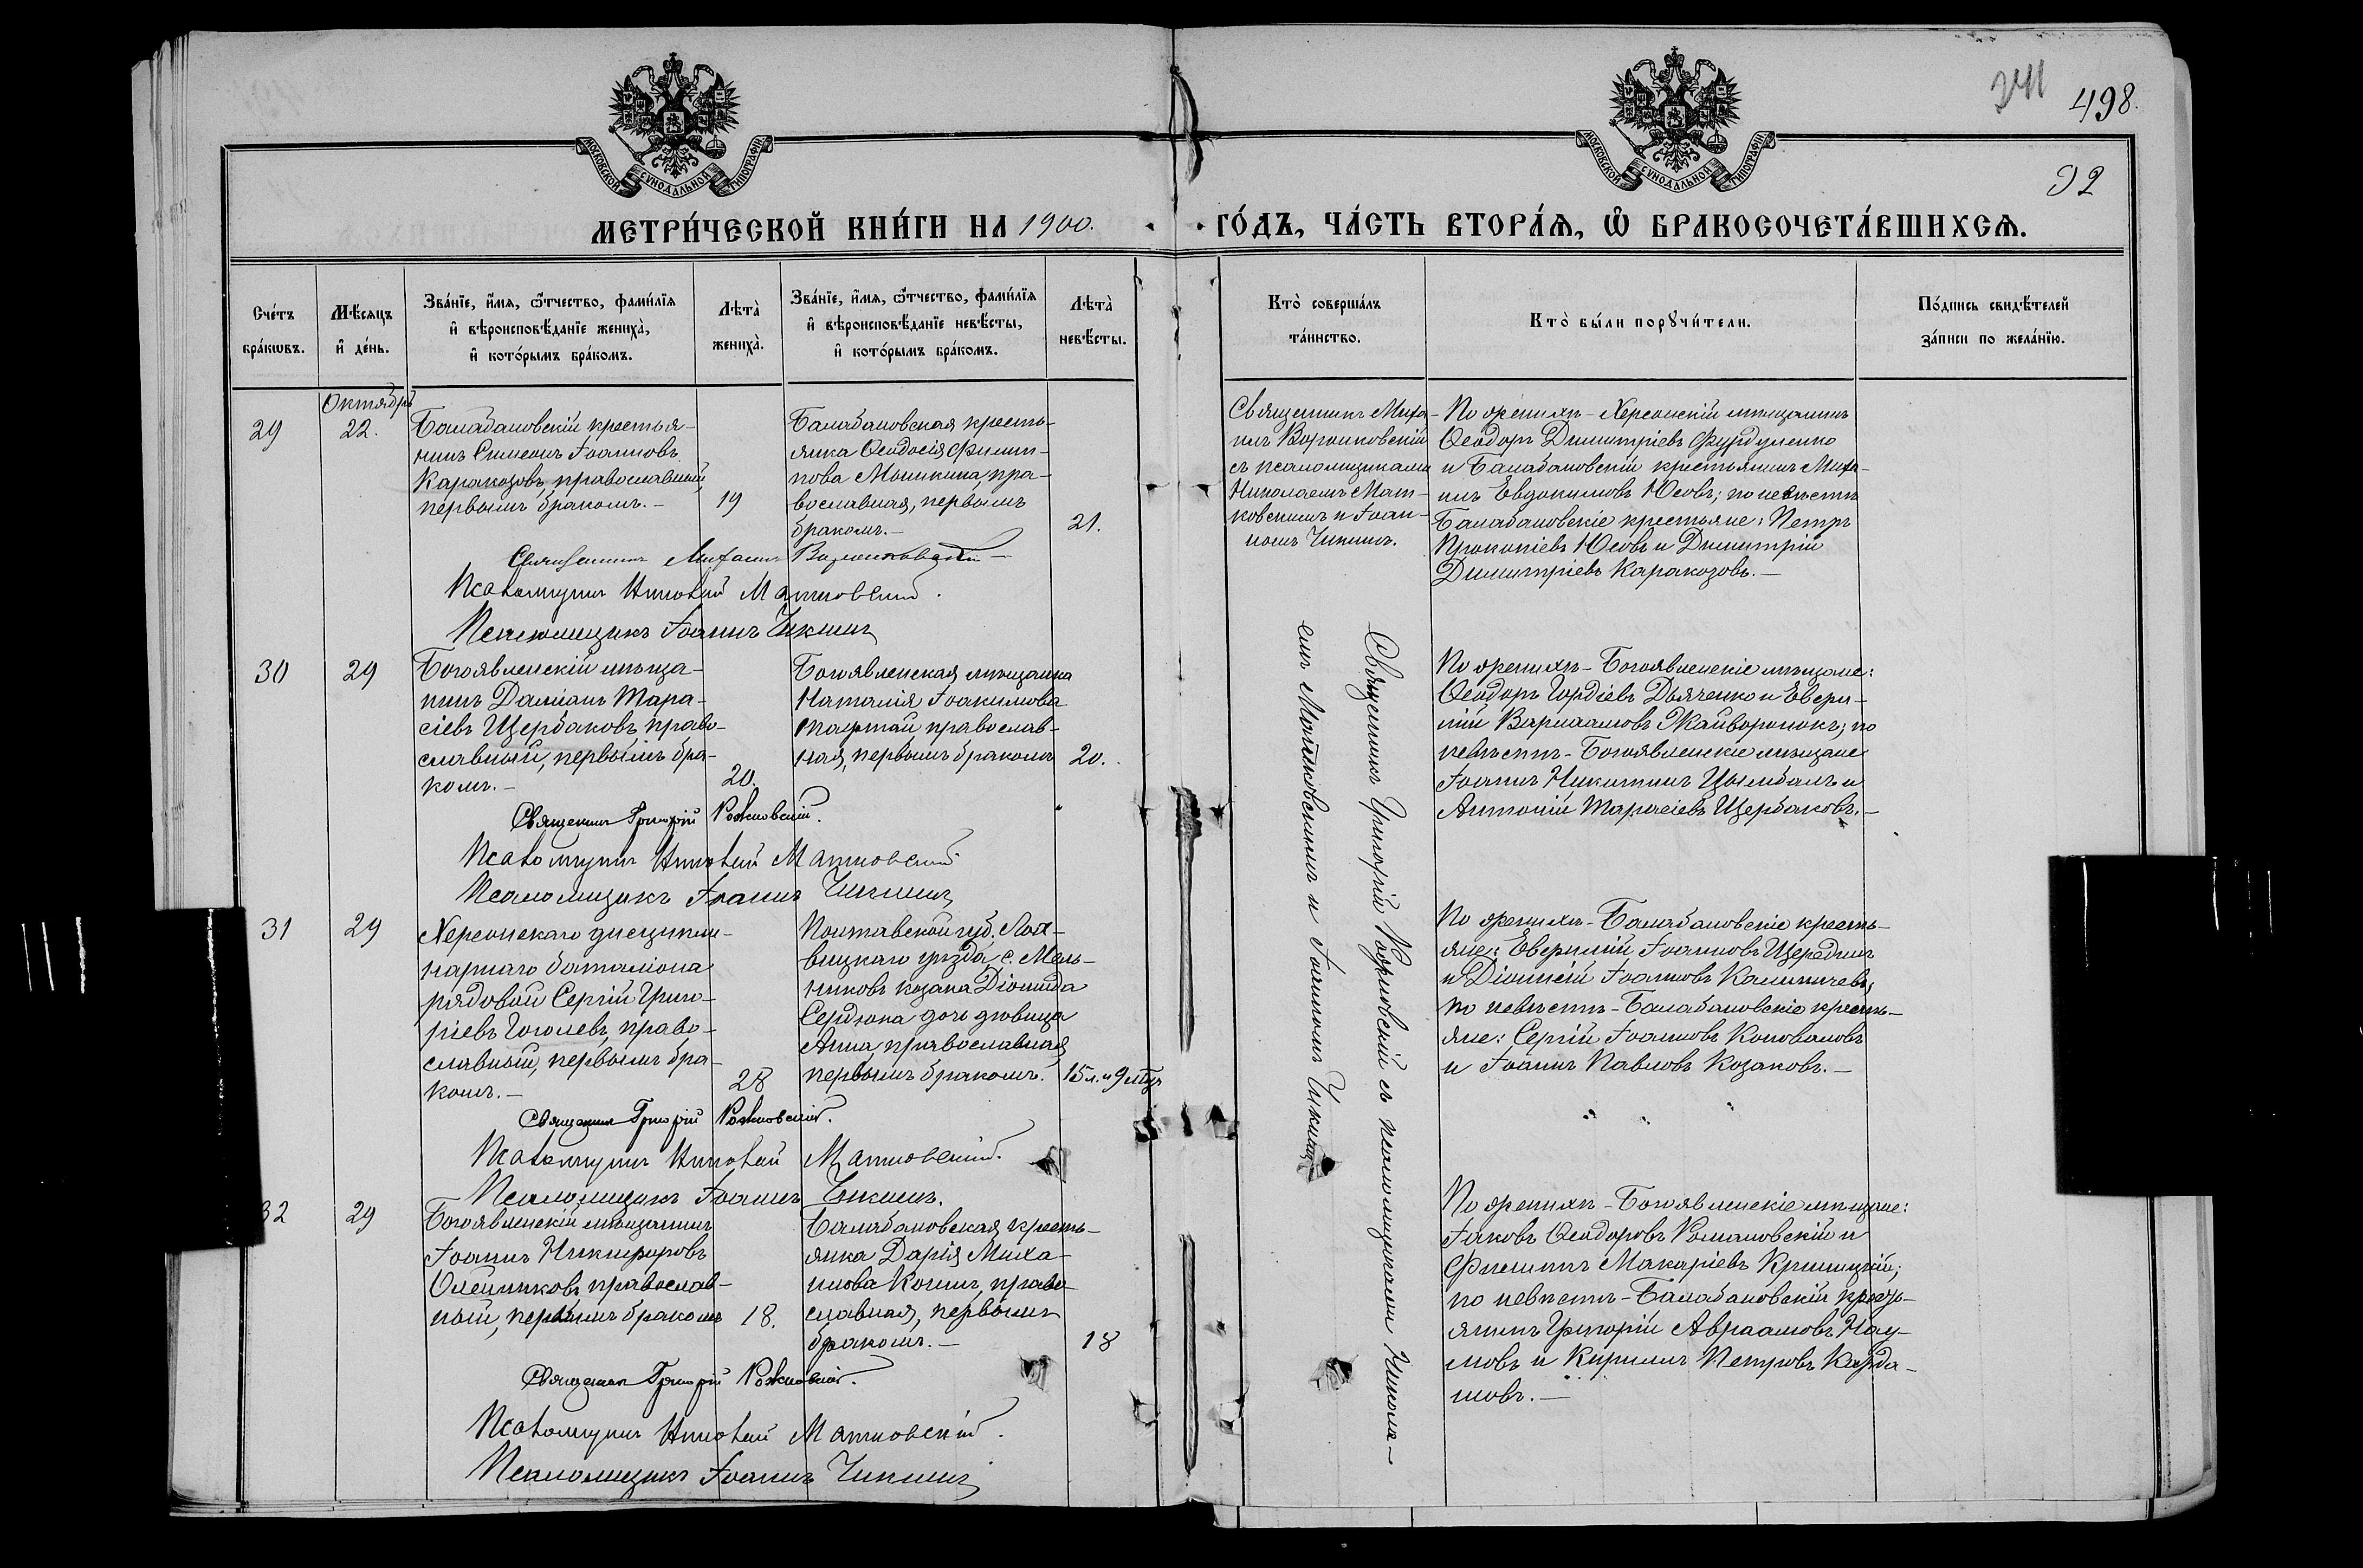 498.
92
МОСКОВСКОЙ СѴНОДАЛЬНОЙ ТИПОГРАФІИ
МОСКОВСКОЙ СѴНОДАЛЬНОЙ ТИПОГРАФІИ
МЕТРИ́ЧЕСКОЙ КНИ́ГИ НА 1900. ГО́ДЪ, ЧА́СТЬ ВТОРА́Ѧ, Ѡ҆ БРАКОСОЧЕТА́ВШИХСѦ.
Сче́тъ бра́кѡвъ.
Мѣ́сяцъ и҆ де́нь.
Зва́нїе, и҆́мя, ѻ҆́тчество, фами́лїя
и҆ вѣроисповѣ́данїе жениха̀,
и҆ кото́рымъ бра́комъ.
Лѣта̀ жениха̀.
Зва́нїе, и҆́мя, ѻ҆́тчество, фами́лїя
и҆ вѣроисповѣ́данїе невѣ́сты,
и҆ кото́рымъ бра́комъ.
Лѣта̀ невѣ́сты.
Кто̀ соверша́лъ та́инство.
Кто̀ бы́ли порꙋчи́тели.
По́дпись свидѣ́телей за́писи по жела́нїю.
29
Октябрь
22.
Балабановскій крестья-
нинъ Симеонъ Іоанновъ
Каракозовъ, православный,
первымъ бракомъ.-
19
Балабановская кресть-
янка Ѳеодосія Филип-
пова Мышкина, пра-
вославная, первымъ
бракомъ.-
21.
Священникъ Миха-
илъ Воронковскій
съ псаломщиками
Николаемъ Мат-
ковскимъ и Іоан-
номъ Чикишъ.
По женихѣ - Херсонскій мѣщанинъ
Ѳеодоръ Димитріевъ Фурдуленко
и Балабановскій крестьянинъ Миха-
илъ Евдокимовъ Юсовъ; по невѣстѣ
Балабановскіе крестьяне: Петръ
Прокопіевъ Юсовъ и Димитрій
Димитріевъ Каракозовъ.-
Священникъ Михаилъ Воронковскій
Псаломщикъ Николай Матковскій.
Псаломщикъ Іоаннъ Чикишъ
30
29
Богоявленскій мѣща-
нинъ Даміанъ Тара-
сіевъ Щербаковъ, право-
славный, первымъ бра-
комъ.-
20.
Богоявленская мѣщанка
Наталія Іоакимова
православ-
ная, первымъ бракомъ
20.
По женихѣ - Богоявленскіе мѣщане:
Ѳеодоръ Гордіевъ Дьяченко и Евѳи-
мій Варлаамовъ Жайворонокъ; по
невѣстѣ - Богоявленскіе мѣщане
Іоаннъ Никитинъ Цымбалъ и
Антоній Тарасіевъ Щербаковъ.-
Священникъ Григорій
Псаломщикъ Николай Матковскій
Псаломщикъ Іоаннъ Чикишъ
Священникъ Григорій съ псаломщиками Никола-
емъ Матковскимъ и Іоанномъ Чикишъ
31
29
Херсонскаго дисципли-
нарнаго баталіона
рядовой Сергій Григо-
ріевъ Гоголевъ, право-
славный, первымъ бра-
комъ.-
28
Полтавской губ. Лох-
вицкаго уѣзда, с. Мель-
никовъ козака Діомида
Сердюка дочь дѣвица
Анна, православная,
первымъ бракомъ.
15 л. и 9 мѣс.
По женихѣ - Балабановскіе кресть-
яне: Евѳимій Іоанновъ Щерединъ
и Діонисій Іоанновъ Калиничевъ;
по невѣстѣ - Балабановскіе кресть-
яне: Сергій Іоанновъ Коноваловъ
и Іоаннъ Павловъ Козаковъ.-
Священникъ Григорій
Псаломщикъ Николай Матковскій.
Псаломщикъ Іоаннъ Чикишъ.
32
29
Богоявленскій мѣщанинъ
Іоаннъ Никифоровъ
Олейниковъ, православ-
ный, первымъ бракомъ
18.
Балабановская кресть-
янка Дарія Миха-
илова право-
славная, первымъ
бракомъ.-
18
По женихѣ - Богоявленскіе мѣщане:
Іаковъ Ѳеодоровъ Романовскій и
Филиппъ Макаріевъ Криницкій;
по невѣстѣ - Балабановскій кресть-
янинъ Григорій Авраамовъ Нау-
мовъ и Кириллъ Петровъ Карда-
шовъ.-
Священникъ Григорій
Псаломщикъ Николай Матковскій.
Псаломщикъ Іоаннъ Чикишъ